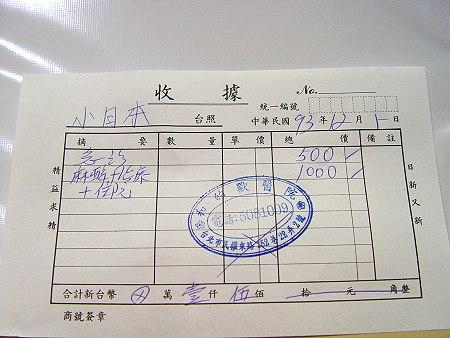 收 據
No.
統一編號
小日本 台照 中華民國 93 年 12 月 1 日
摘 要 數 量 單 價 總 價 備 註
急診 500
麻醉+導尿 1000
+住院
精益求精
日新又新
動物醫院
電話:5081009
合計新台幣 ⊗ 萬 壹 仟 伍 佰 拾 元 角整
商號簽章